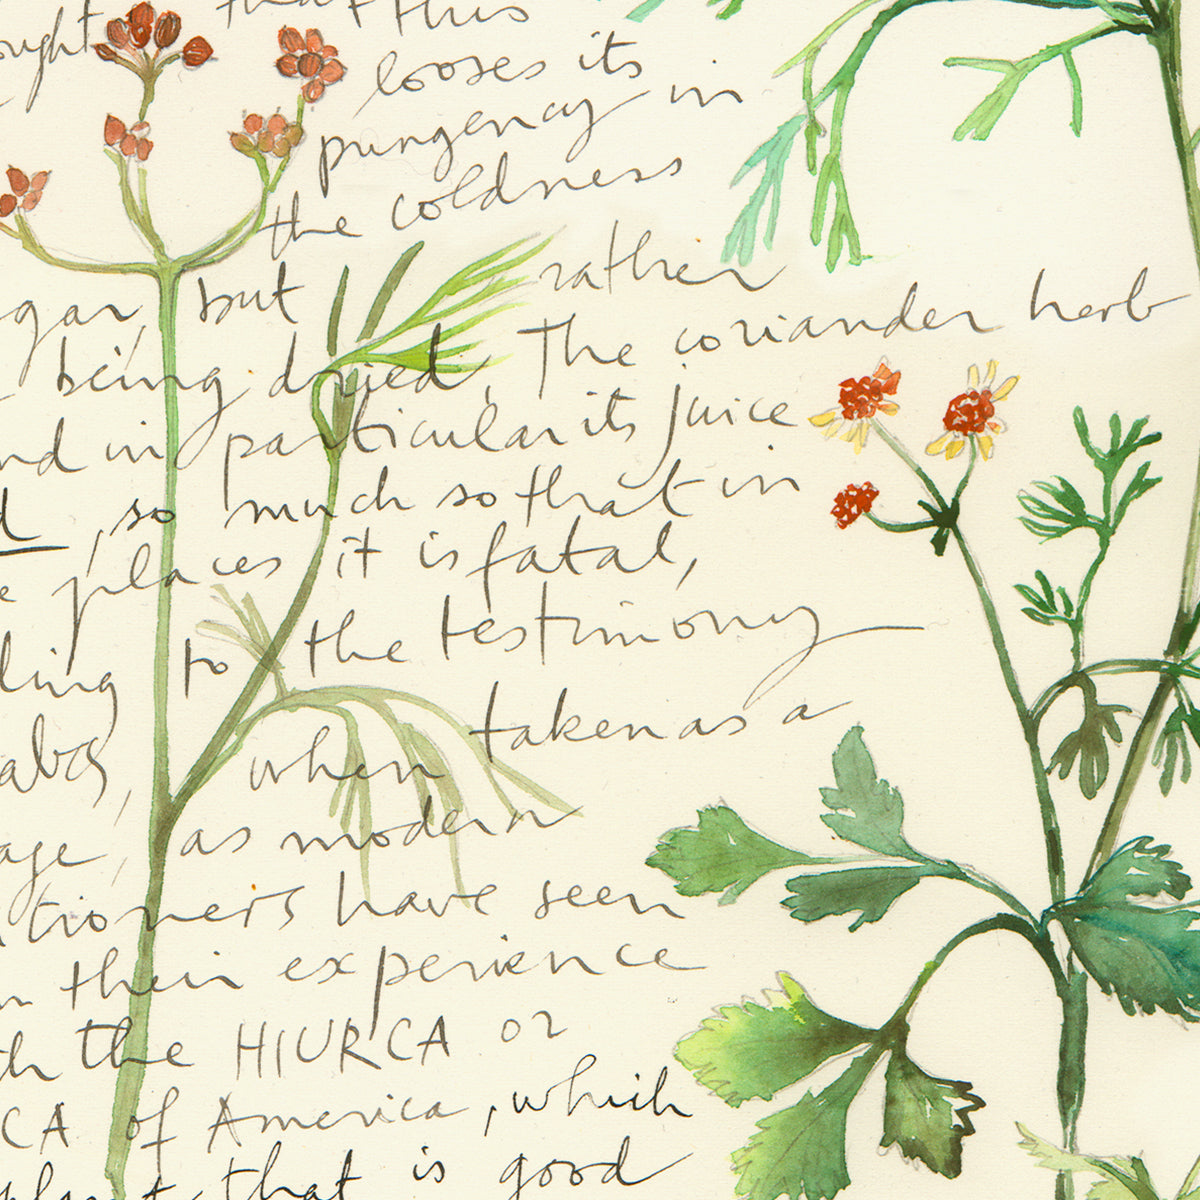 that this
looses its
pungency in
the coldness
but rather
being dried, The coriander herb
in particular its juice
, so much so that in
places it is fatal,
to the testimony
when taken as a
, as modern
have seen
their experience
the HIURCA or
CA of America, which
that is good